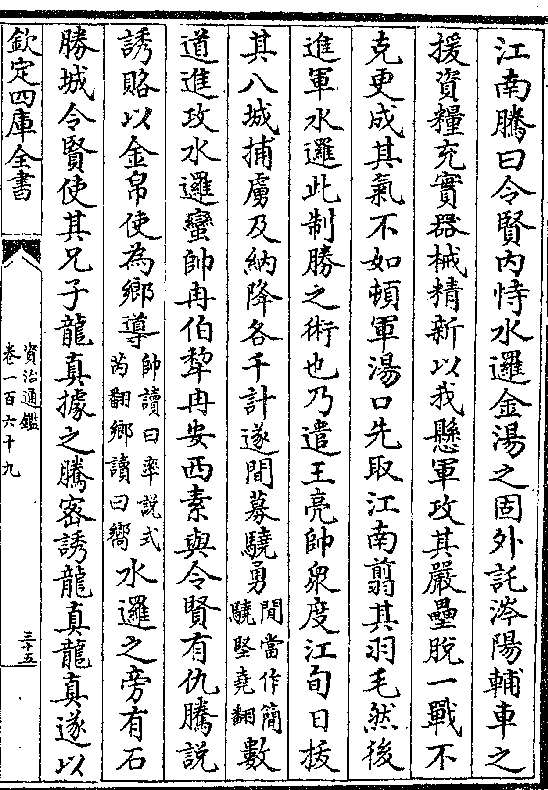 江南騰曰令賢内恃水邏金湯之固外託涔陽輔車之
援資糧充實器械精新以我懸軍攻其嚴壘脫一戰不
克更成其氣不如頓軍湯口先取江南翦其羽毛然後
進軍水邏此制勝之術也乃遣王亮帥衆度江旬日拔
其八城捕虜及納降各千計遂間募驍勇間當作簡驍堅堯翻數
道進攻水邏蠻帥冉伯犂冉安西素與令賢有仇騰說
誘賂以金帛使為鄉導帥讀曰率説式芮翻鄉讀曰嚮水邏之旁有石
勝城令賢使其兄子龍真據之騰密誘龍真龍真遂以
欽定四庫全書
資治通鑑
卷一百六十九
三十五